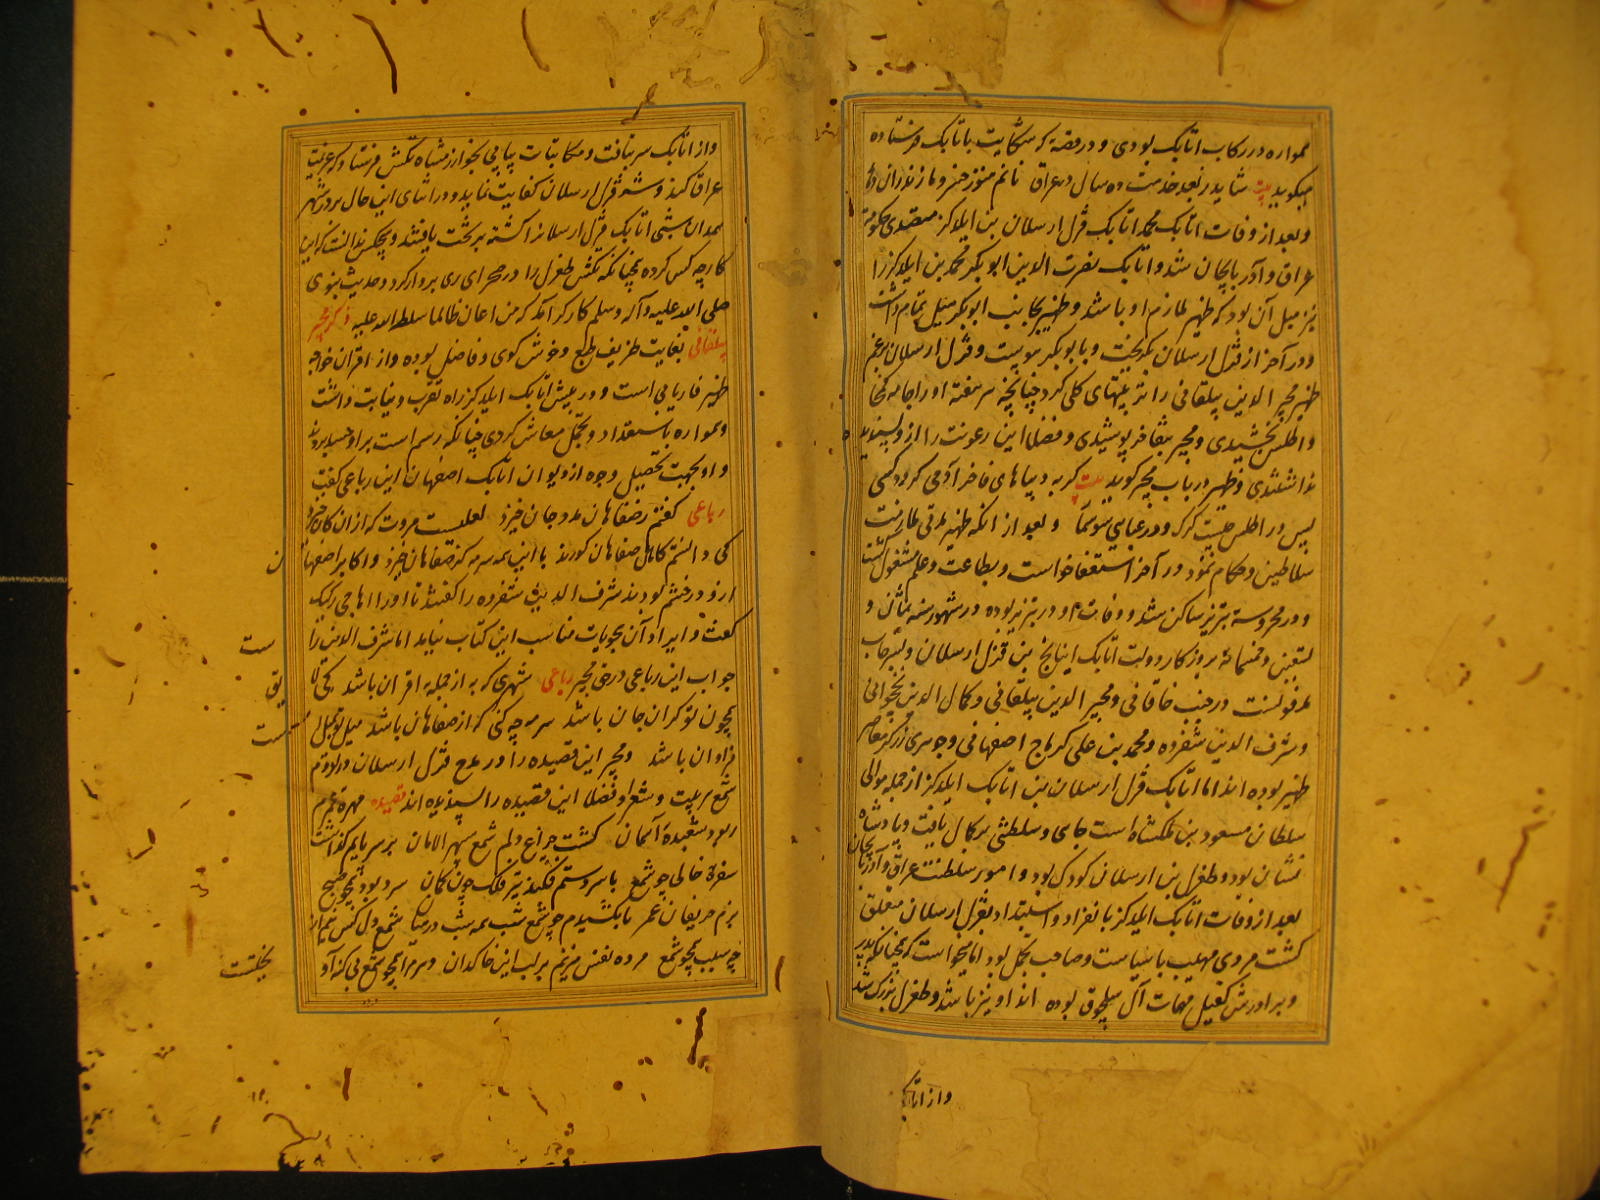 همواره در رکاب اتابک بودی و در قصه که شکایت باتابک فرستاده
میگوید بیت شاید ز بعد خدمت ده سال در عراق نانم هنوز خسرو مازندران دهد
و بعد از وفات اتابک محمد اتابک قزل ارسلان بن ایلدکز متصدی حکومت
عراق و آذربایجان شد و اتابک نصرت الدین ابوبکر محمد بن ایلدکز را
نیز میل آن بود که ظهیر ملازم او باشد و ظهیر بجانب ابوبکر میل تمام داشت
و در آخر از قزل ارسلان بگریخت و با بوبکر پیوست و قزل ارسلان برغم
ظهیر مجیر الدین بیلقانی را تربیتهای کلی کرد چنانچه سر هفته او را جامه کمخا
و اطلس بخشیدی و مجیر بتفاخر پوشیدی و فضلا این رعونت را از و پسندیده
نداشتندی و ظهیر در باب مجیر گوید بیت گر به دیباهای فاخر آدمی گردد کسی
پس در اطلس چیست گرگ و در عبایی سوسمار و بعد از انکه ظهیر مدتی ملازمت
سلاطین و حکام نمود در آخر استعفا خواست و بطاعت و علم مشغول گشت
و در محروسه تبریز ساکن شد و وفات او در تبریز بوده در شهور سنه ثمان و
تسعین و خمسمائه بروزگار دولت اتابک اینانج بن قزل ارسلان و بسرخاب
مدفونست در جنب خاقانی و مجیر الدین بیلقانی و کمال الدین نخجوانی
و شرف الدین شفروه و محمد بن علی کرماج اصفهانی و جوهری زرگر معاصر
ظهیر بوده اند اما اتابک قزل ارسلان بن اتابک ایلدکز از جمله موالی
سلطان مسعود بن ملکشاه است جاهی و سلطنتی بر کمال یافت و پادشاه
نشان بود و طغرل بن ارسلان کودک بود و امور سلطنت عراق و آذربایجان
بعد از وفات اتابک ایلدکز بانفراد و استبداد بقزل ارسلان متعلق
گشت مردی مهیب با سیاست و صاحب تجمل بود اما میخواست که همچنانکه پدر
و برادرش کفیل مهمات آل سلجوق بوده اند او نیز باشد و طغرل بزرگ شد
و از اتابک
و از اتابک سر بتافت و مکاتبات پیاپی بخوارزمشاه تکش فرستاد که عزیمت
عراق کند و شر قزل ارسلان کفایت نماید و در اثنای این حال بر در شهر
همدان شبی اتابک قزل ارسلان را کشته بر تخت یافتند و هیچکس ندانست که این
کار چه کس کرده همچنانکه تکش طغرل را در صحرای ری بر دار کرد و حدیث نبوی
صلی الله علیه و آله و سلم کارگر آمد که من اعان ظالما سلطه الله علیه ذکر مجیر
بیلقانی بغایت ظریف طبع و خوش گوی و فاضل بوده و از اقران خواجه
ظهیر فاریابی است و در پیش اتابک ایلدکز راه تقرب و نیابت داشت
و همواره باستعداد و تجمل معاش کردی چنانکه رسم است بر او حسد بردند
و او بجهت تحصیل وجوه از دیوان اتابک اصفهان این رباعی گفت
رباعی گفتم ز صفاهان مدد جان خیزد لعلیست مروت که از ان کان خیزد
کی دانستم کاهل صفاهان کورند با این همه سرمه کز صفاهان خیزد و اکابر اصفهان
ازو در خشم بودند شرف الدین شفروه را گفتند تا او را اهاجی رکیک
گفت و ایراد آن هجویات مناسب این کتاب نیاید اما شرف الدین را
جواب این رباعی در حق مجیر رباعی شهری که به از جمله ایران باشد کی لایق
هجو چون تو گران جان باشد سرمه چه کنی که از صفاهان باشد میل تو بمیل
فراوان باشد و مجیر این قصیده را در مدح قزل ارسلان در لزوم
شمع مربیت و شعرا و فضلا این قصیده را پسندیده اند قصیده مهره عمرم
ربود شعبده آسمان گشت چراغ دلم شمع سپهر الامان بر سر پایم گذاشت
سفره خالی چو شمع با سر دستم فکند تیر فلک چون کمان سرد بود همچو صبح
بزم حریفان عمر تا بکشیدم چو شمع شب همه شب در میان شمع دل کس نیم از
چه سبب همچو شمع مرده نفس میزنم بر لب این خاکدان در سرم همچو شمع بی گنه آو
بخت